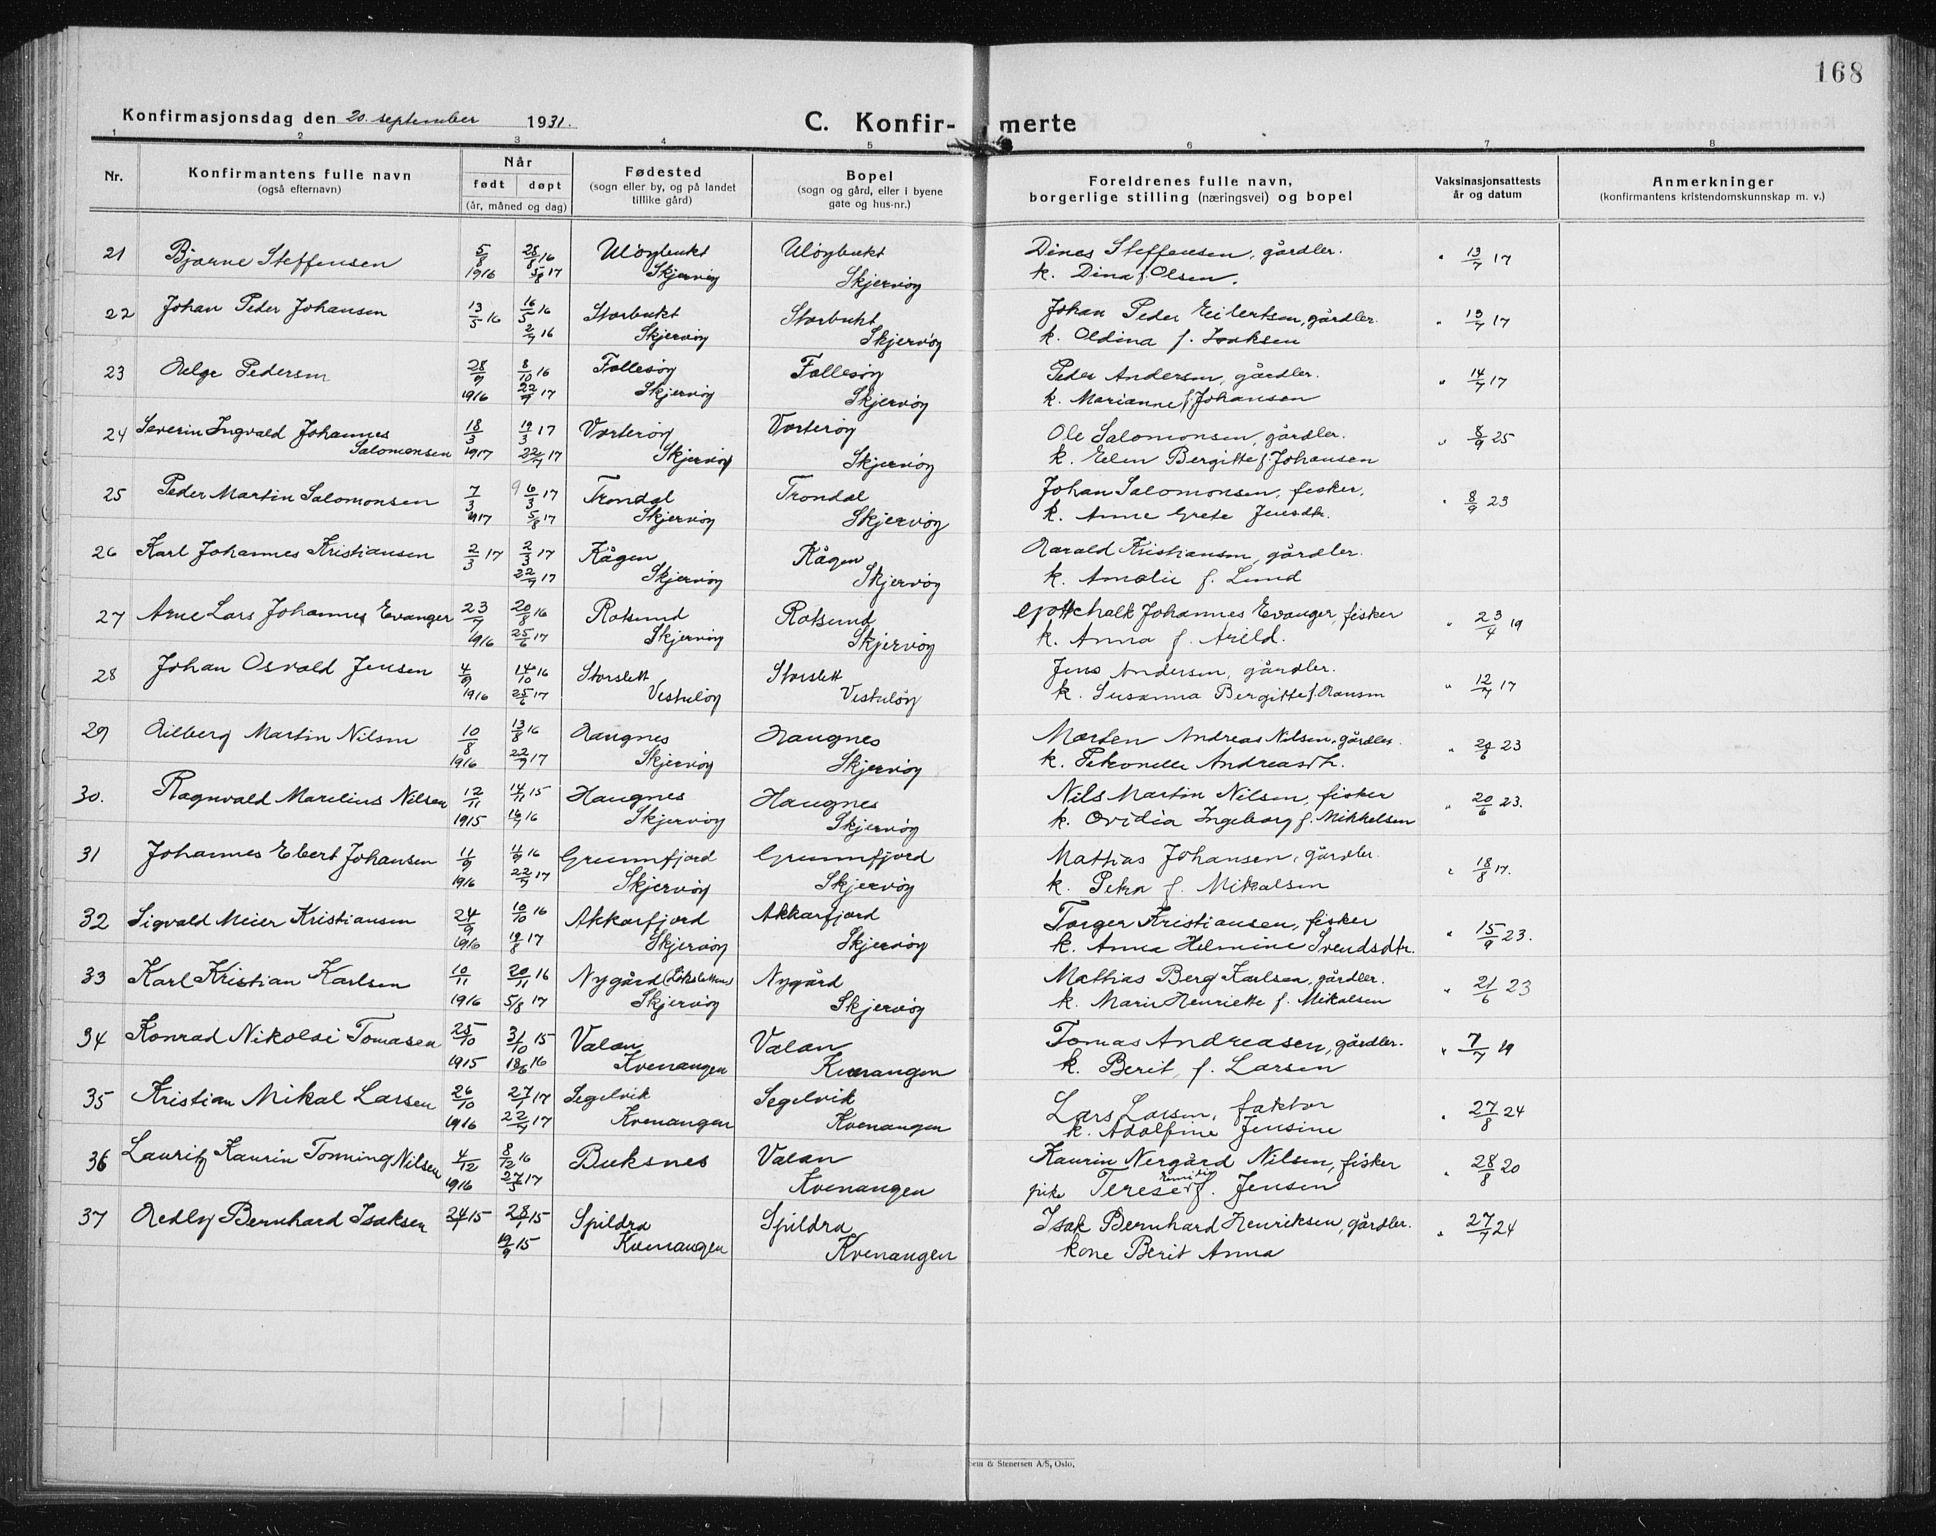 168
Konfirmasjonsdag den 20. september 1931.
C. Konfir- merte
1 2 3 4 5 6 7 8
Nr.
Konfirmantens fulle navn
(også efternavn)
Når
født døpt
(år, måned og dag)
Fødested
(sogn eller by, og på landet
tillike gård)
Bopel
(sogn og gård, eller i byene
gate og hus-nr.)
Foreldrenes fulle navn,
borgerlige stilling (næringsvei) og bopel
Vaksinasjonsattests
år og datum
Anmerkninger
(konfirmantens kristendomskunnskap m. v.)
21 Bjarne Steffensen 5/8 28/8 16 Uløybukt Uløybukt Dinas Steffensen, gårdbr. " 13/7 17
1916 5/8 17 Skjervøy Skjervøy k. Dina f. Olsen.
22 Johan Peder Johansen 13/5 16 16/5 16 Storbukt Storbukt Johan Peder Eilertsen, gårdbr. " 13/7 17
2/7 16 Skjervøy Skjervøy k. Oldina f. Isaksen
23 Helge Pedersen 28/9 8/10 16 Follesøy Follesøy Peder Andersen, gårdbr. " 14/7 17
1916 22/7 17 Skjervøy Skjervøy k. Marianne f. Johansen
24 Severin Ingvald Johannes 18/3 19/3 17 Vorterøy Vorterøy Ole Salomonsen, gårdbr. " 8/9 25
Salomonsen 1917 22/7 17 Skjervøy Skjervøy k. Elen Bergitte f. Johansen
25 Peder Martin Salomonsen 7/3 9 6/3 17 Trondal Trondal Johan Salomonsen, fisker, " 8/9 23
1917 5/8 17 Skjervøy Skjervøy k. Anne Grete Jensdtr.
26 Karl Johannes Kristiansen 2/3 17 2/3 17 Kågen Kågen Harald Kristiansen, gårdbr.
22/7 17 Skjervøy Skjervøy k. Amalie f. Lund
27 Arne Lars Johannes Evanger 23/7 20/8 16 Rotsund Rotsund Johannes Evanger, fisker " 23/4 19
1916 25/6 17 Skjervøy Skjervøy k. Anna f. Arild.
28 Johan Osvald Jensen 4/9 14/10 16 Storslett Storslett Jens Andersen, gårdbr. " 12/7 17
1916 25/6 17 k. Susanna Bergitte f. Hansen
29 Hilberg Martin Nilsen 10/8 13/8 16 Haugnes Haugnes Morten Andreas Nilsen, gårdbr. " 20/6 23
1916 22/7 17 Skjervøy Skjervøy k. Petronelle Andreasdtr.
30. Ragnvald Marelius Nilsen 12/11 14/11 15 Haugnes Haugnes Nils Martin Nilsen, fisker " 20/6 23.
1915 16/7 16 Skjervøy Skjervøy k. Ovidia Ingeborg f. Mikkelsen
31 Johannes Ebert Johansen 11/9 11/9 16 Grunnfjord Grunnfjord Mattias Johansen, gårdbr. " 18/8 17.
1916 22/7 17 Skjervøy Skjervøy k. Petra f. Mikalsen
32 Sigvald Meier Kristiansen 24/9 10/10 16 Akkarfjord Akkarfjord Torger Kristiansen, fisker " 15/9 23.
1916 19/8 17 Skjervøy Skjervøy k. Anna Helmine Svendsdtr.
33 Karl Kristian Karlsen 10/11 20/11 16 Nygård Nygård Mathias Berg Karlsen, gårdbr. " 21/6 23
1916 5/8 17 Skjervøy Skjervøy k. Marie Henriette f. Mikalsen
34 Konrad Nikolai Tomasen 25/10 31/10 15 Valan Valan Tomas Andreasen, gårdbr. " 7/7 19
1915 18/6 16 Kvenangen Kvenangen k. Berit, f. Larsen
35 Kristian Mikal Larsen 26/10 27/1 17 Segelvik Segelvik Lars Larsen, faktor " 27/8 24
1916 22/7 17 Kvenangen Kvenangen k. Adolfine Jensine
36 Lauritz Kaurin Tonning Nilsen 4/12 8/12 16 Buksnes Valan Kaurin Nergård Nilsen, fisker " 28/8 20
1916 27/5 17 Kvenangen pike Terese f. Jensen
37 Hedly Bernhard Isaksen 24/1 15 28/1 15 Spildra Spildra Isak Bernhard Henriksen, gårdbr. " 27/7 24
19/9 15 Kvenangen Kvenangen kone Berit Anna
& Stenersen A/S, Oslo.